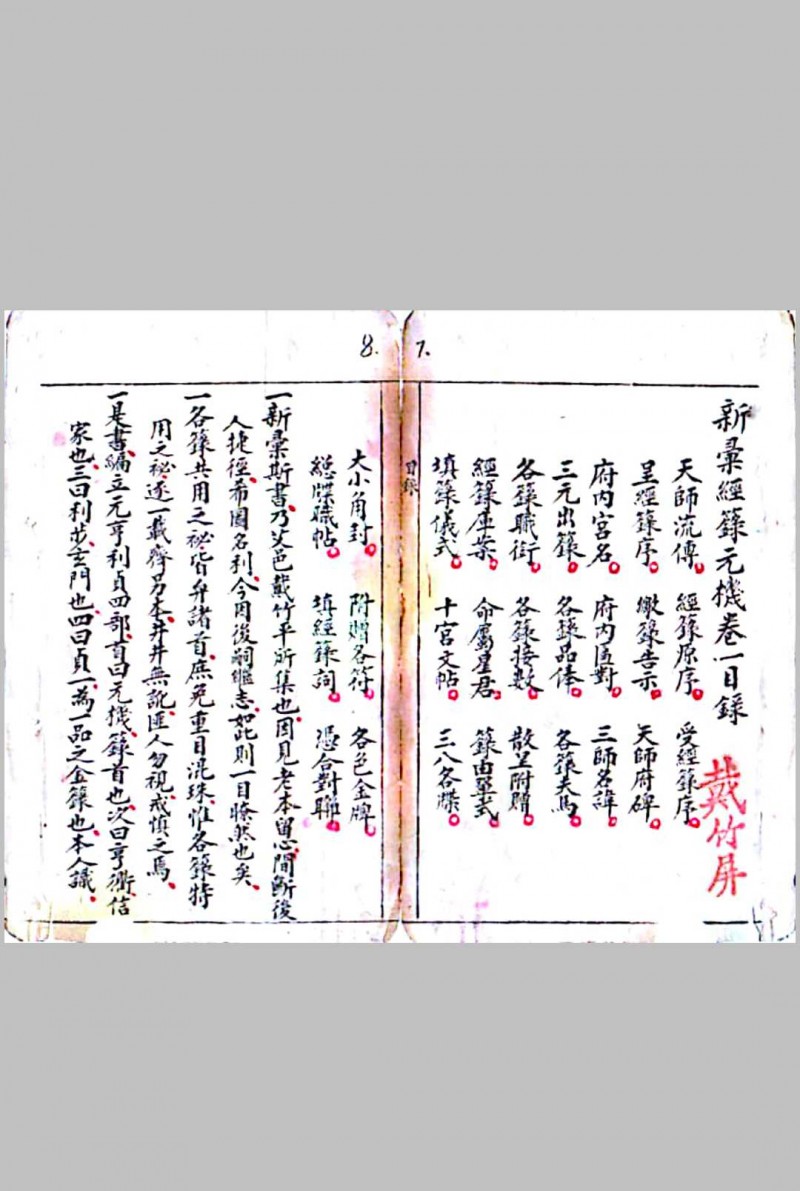 7.
新彙經籙元機卷一目錄
戴竹屏
天師流傳。經籙原序。受經籙序。
呈經籙序。繳籙告示。天師府碑。
府內宮名。府內匾對。三師名諱。
三元出籙。各籙品俸。各籙天馬。
各籙職銜。各籙接數。散呈附贈。
經籙庫案。命屬星君。籙由單式。
填籙儀式。十宮文帖。三八各牒。
目錄
8.
大小角封。附贈各符。各色金牌。
總牒職帖。填經籙詞。憑合對聯。
一新彙斯書、乃艾邑戴竹平所集也、因見老本留心間斷後
人捷徑、希圖名利、今因後嗣繼志、如此則一目瞭然也矣、
一各籙共用之祕、皆弁諸首、庶免重目混珠、惟各籙特
用之祕、逐一載齊另本、井井無訛、匪人勿視、戒慎之焉、
一是書、編立元亨利貞四部、首曰元機、籙首也、次曰亨衢、信
家也、三曰利步、玄門也、四曰貞一、為一品之金籙也、本人識、